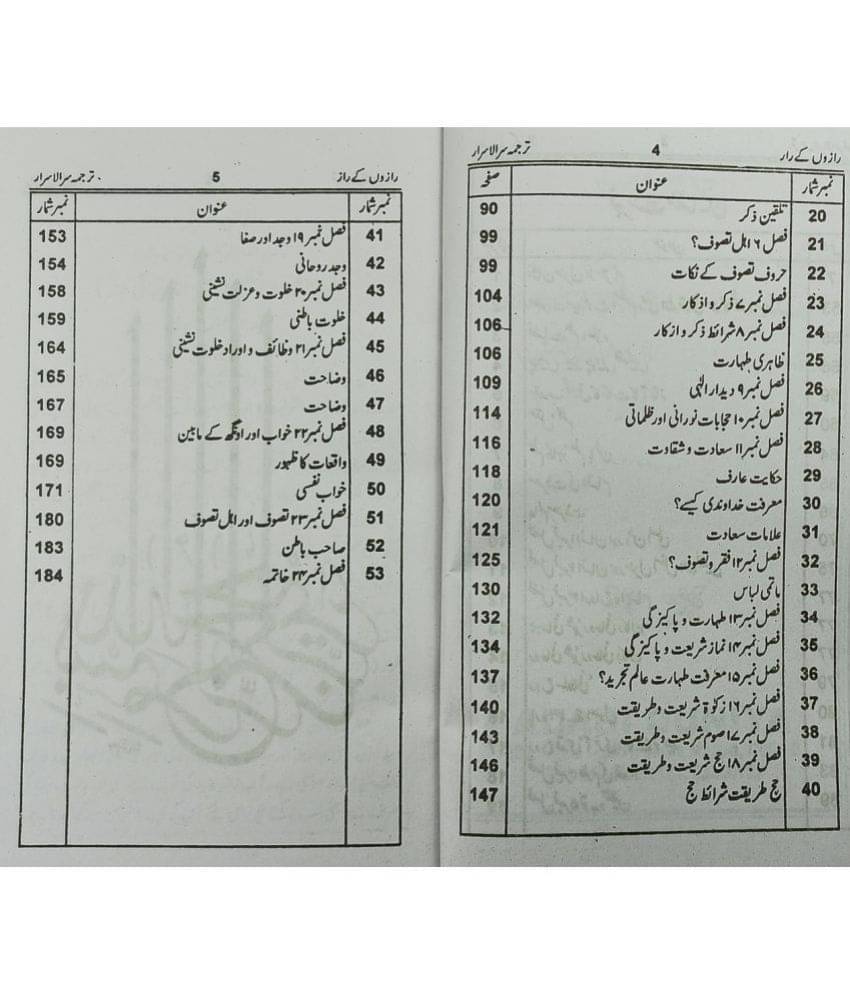 رازوں کے راز 4 ترجمہ سر الاسرار
نمبر شمار عنوان صفحہ
20 تلقین ذکر 90
21 فصل ۶ اہل تصوف؟ 99
22 حروف تصوف کے نکات 99
23 فصل نمبر ۷ ذکر و اذکار 104
24 فصل نمبر ۸ شرائط ذکر و ازکار 106
25 ظاہری طہارت 106
26 فصل نمبر ۹ دیدار الٰہی 109
27 فصل نمبر ۱۰ حجابات نورانی اور ظلماتی 114
28 فصل نمبر ۱۱ سعادت و شقاوت 116
29 حکایت عارف 118
30 معرفت خداوندی کیسے؟ 120
31 علامات سعادت 121
32 فصل نمبر ۱۲ فقر و تصوف؟ 125
33 ماتمی لباس 130
34 فصل نمبر ۱۳ طہارت و پاکیزگی 132
35 فصل نمبر ۱۴ نماز شریعت و پاکیزگی 134
36 فصل نمبر ۱۵ معرفت طہارت عالم تجرید؟ 137
37 فصل نمبر ۱۶ زکوۃ شریعت و طریقت 140
38 فصل نمبر ۱۷ صوم شریعت و طریقت 143
39 فصل نمبر ۱۸ حج شریعت و طریقت 146
40 حج طریقت شرائط حج 147
رازوں کے راز 5 ترجمہ سر الاسرار
نمبر شمار عنوان نمبر شمار
41 فصل نمبر ۱۹ وجد اور صفا 153
42 وجد روحانی 154
43 فصل نمبر ۲۰ خلوت و عزلت نشینی 158
44 خلوت باطنی 159
45 فصل نمبر ۲۱ وظائف و اوراد خلوت نشینی 164
46 وضاحت 165
47 وضاحت 167
48 فصل نمبر ۲۲ خواب اور اونگھ کے مابین 169
49 واقعات کا ظہور 169
50 خواب نفسی 171
51 فصل نمبر ۲۳ تصوف اور اہل تصوف 180
52 صاحب باطن 183
53 فصل نمبر ۲۴ خاتمہ 184